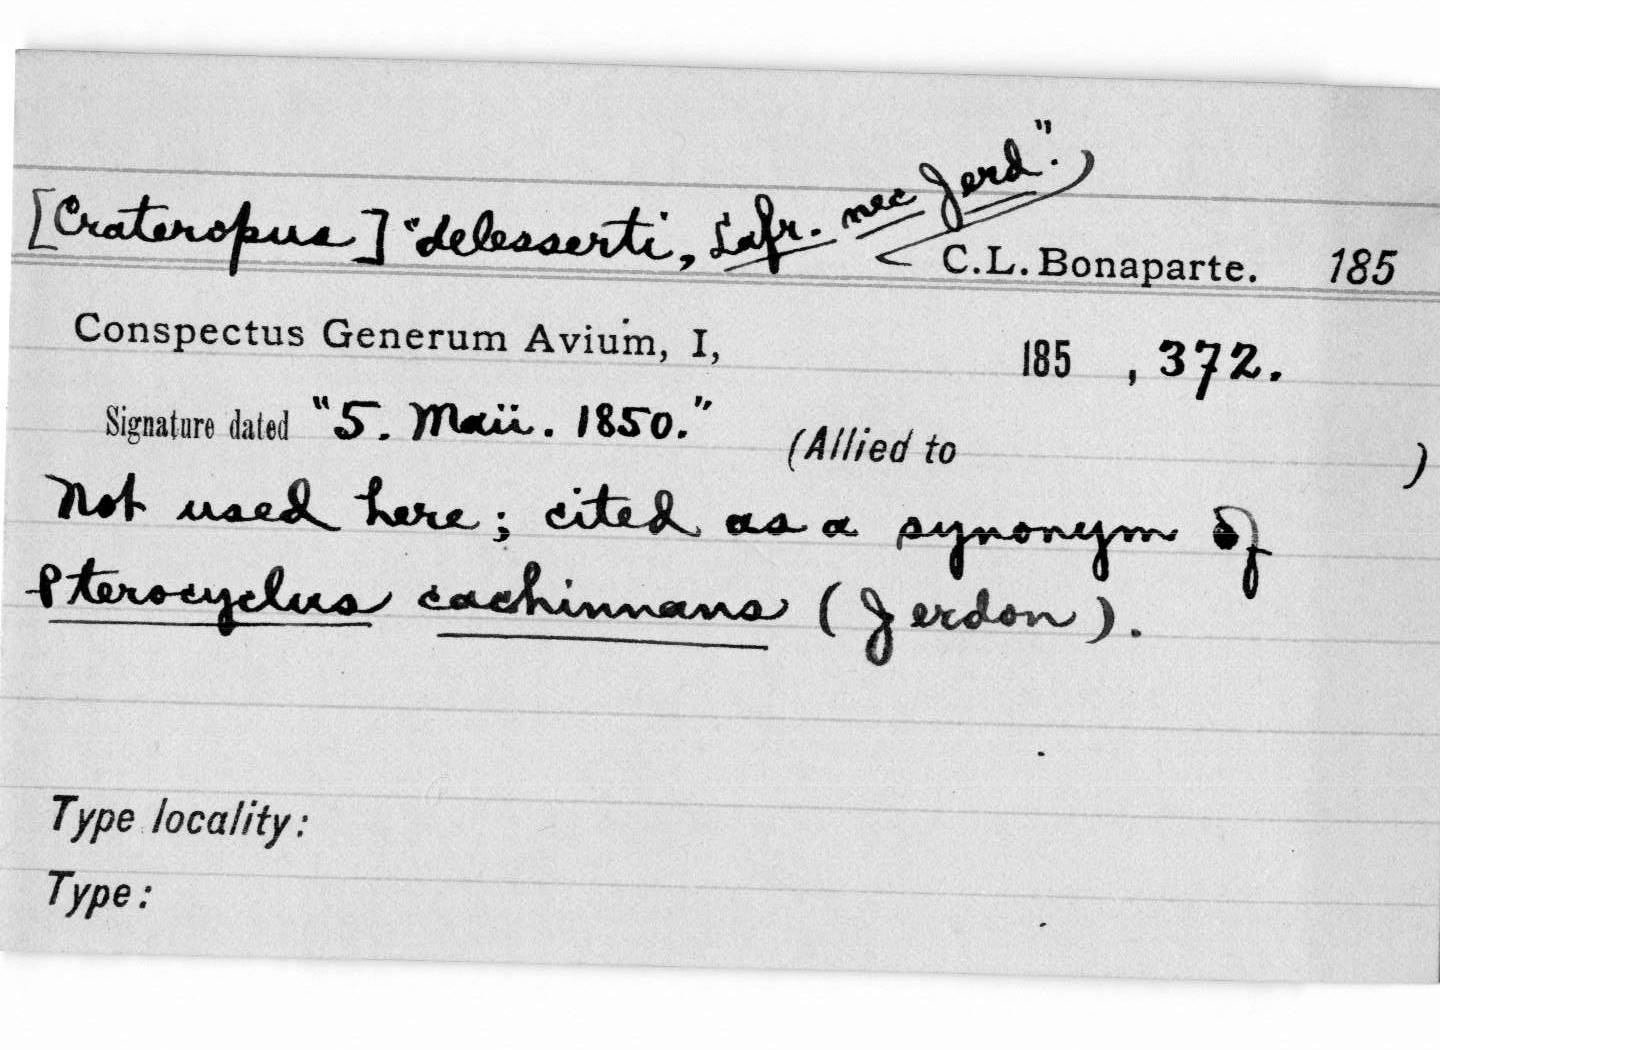 [Crateropus] "delesserti, Lafr. nec Jerd."
C.L. Bonaparte. 185
Conspectus Generum Avium, I, 185 , 372.
Signature dated "5. Maii. 1850." (Allied to )
Not used here; cited as a synonym of
Pterocyclus cachinnans (Jerdon).
Type locality:
Type: